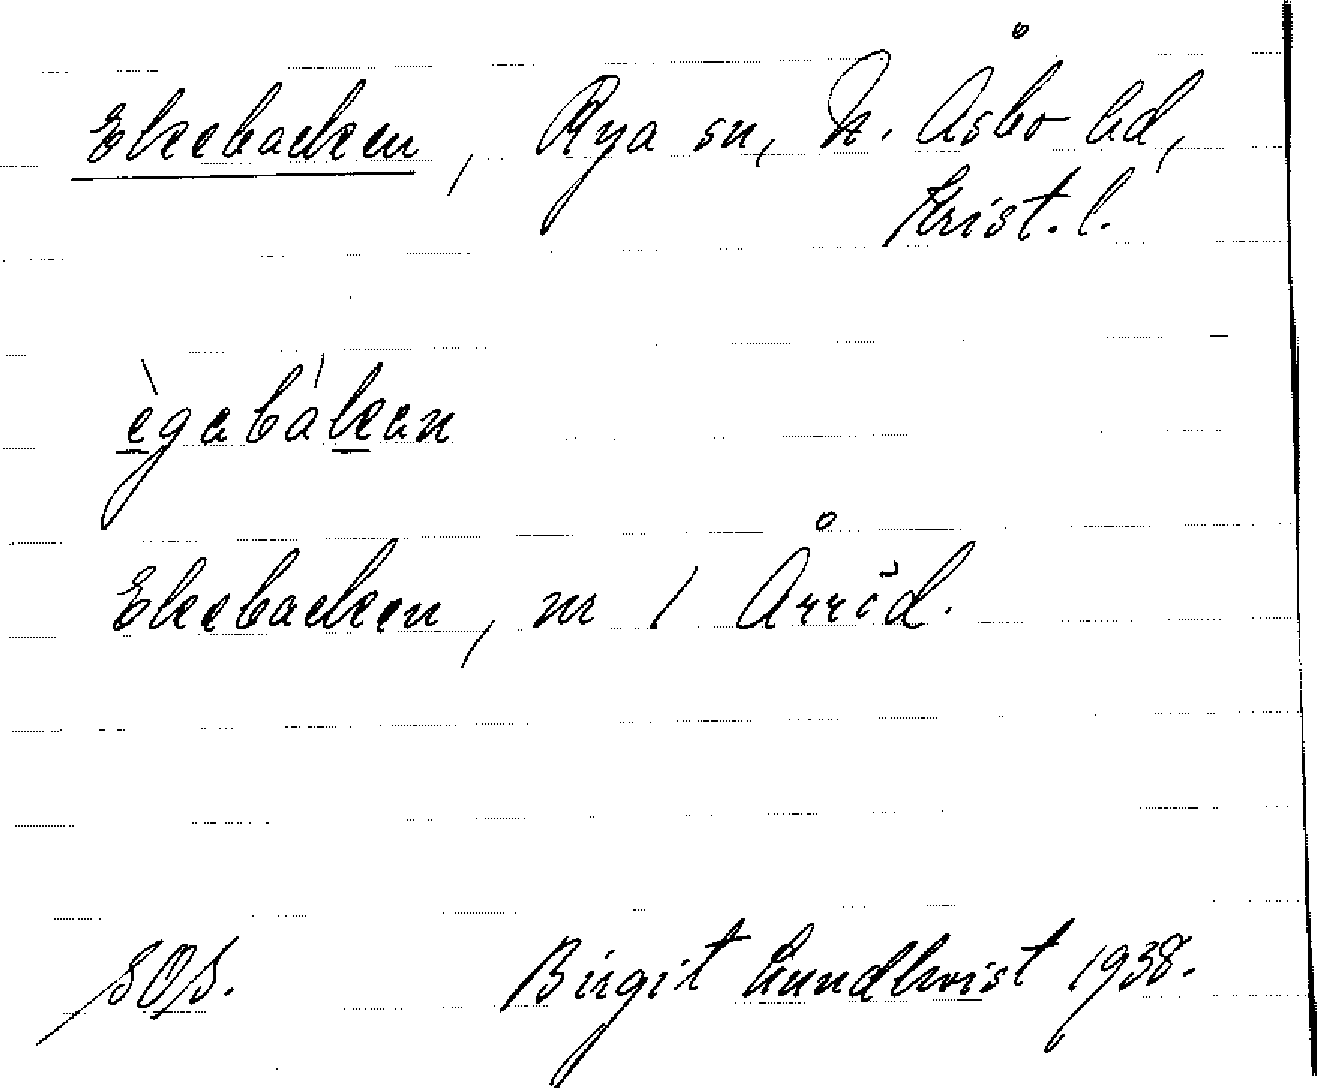 Ekebacken, Rya sn, N. Åsbo hd,
Krist. l.
ègabákan
Ekebacken, nr 1 Årröd.
SOS. Birgit Lundkvist 1938.